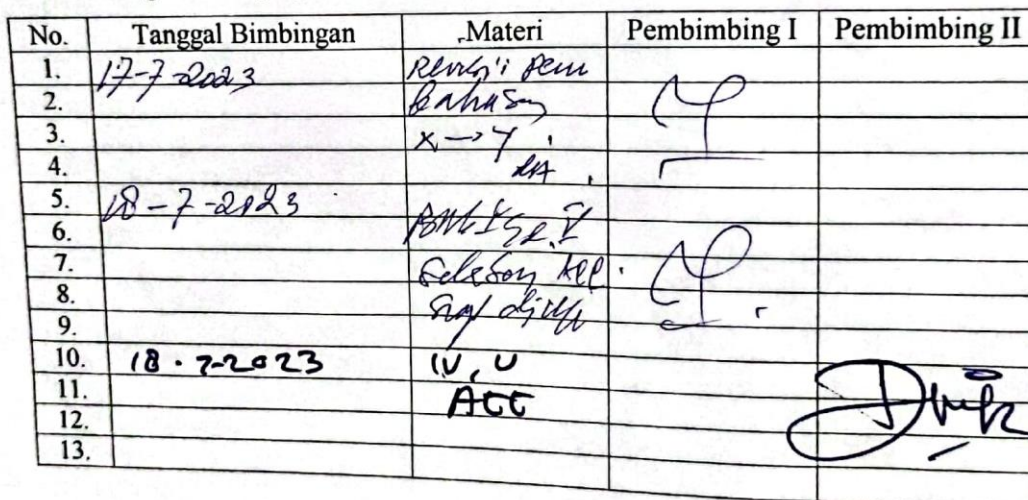 No. Tanggal Bimbingan Materi Pembimbing I Pembimbing II
1. 17-7-2023 Revisi pem
2. bahasan
3. X → Y
4.
5. 18-7-2023
6. BAB I s/d V
7. Selesai, Acc.
8. Siap diuji
9.
10. 18.7-2023 IV, V
11. ACC
12.
13.